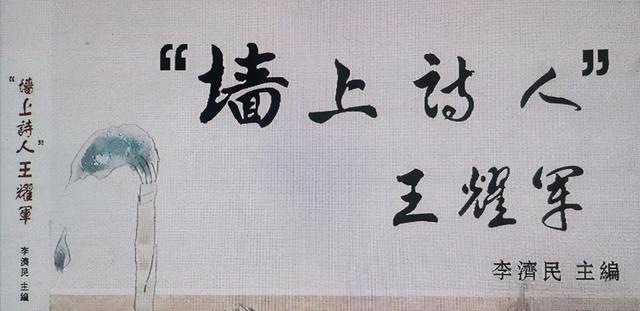 “墙上詩人”
王耀軍
李濟民 主編
“墙上詩人”王耀軍
李濟民 主編